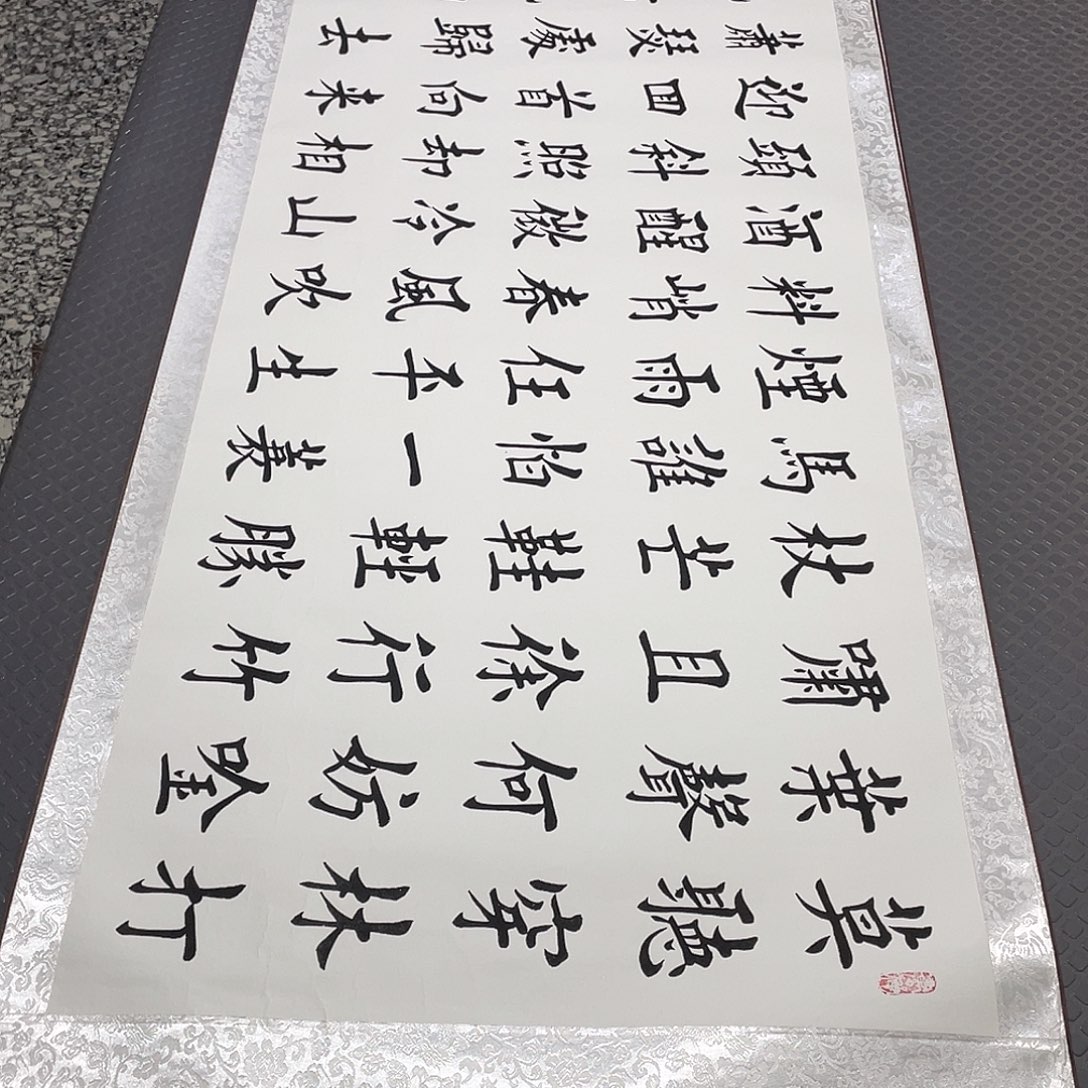 莫聽穿林打
葉聲何妨吟
嘯且徐行竹
杖芒鞋輕勝
馬誰怕一蓑
煙雨任平生
料峭春風吹
酒醒微冷山
頭斜照却相
迎回首向來
蕭瑟處歸去